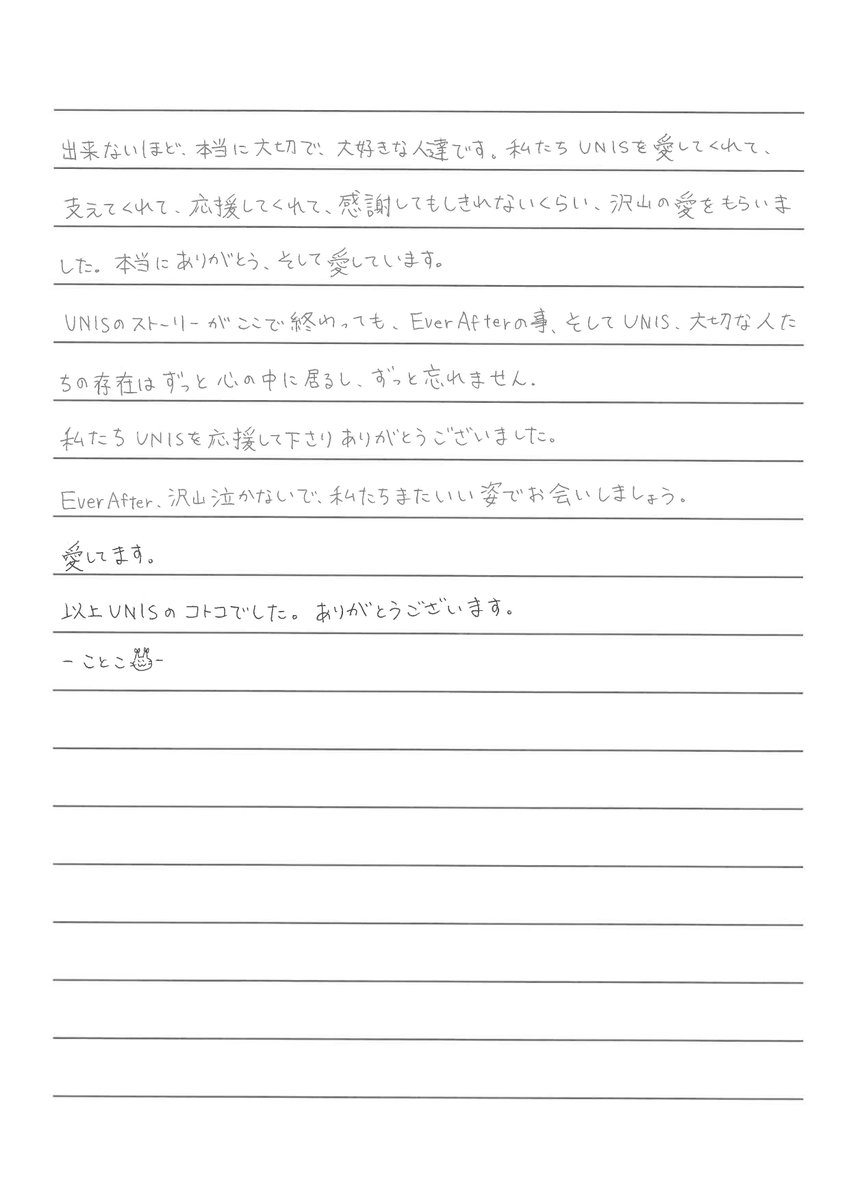 出来ないほど、本当に大切で、大好きな人達です。私たちUNISを愛してくれて、
支えてくれて、応援してくれて、感謝してもしきれないくらい、沢山の愛をもらいま
した。本当にありがとう、そして愛しています。
UNISのストーリーがここで終わっても、EverAfterの事、そしてUNIS、大切な人た
ちの存在はずっと心の中に居るし、ずっと忘れません.
私たちUNISを応援して下さりありがとうございました。
EverAfter、沢山泣かないで、私たちまたいい姿でお会いしましょう。
愛してます。
以上UNISのコトコでした。ありがとうございます。
-ことこ-